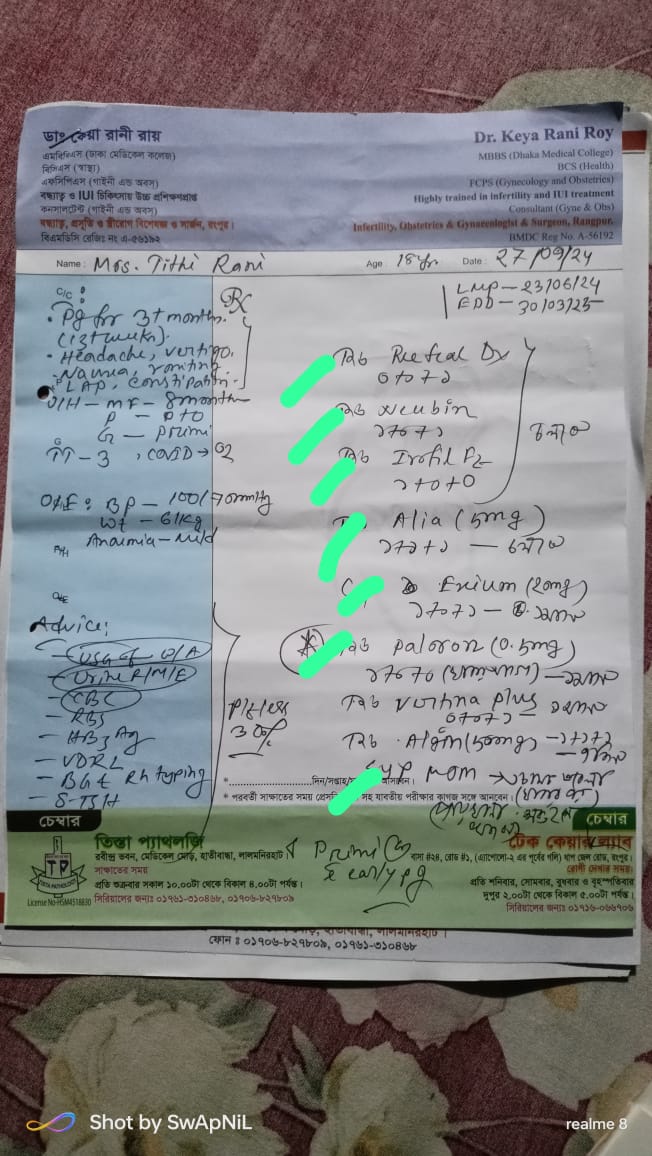 ডাঃ কেয়া রানী রায়
এমবিবিএস (ঢাকা মেডিকেল কলেজ)
বিসিএস (স্বাস্থ্য)
এফসিপিএস (গাইনী এন্ড অবস)
বন্ধ্যাত্ব ও IUI চিকিৎসায় উচ্চ প্রশিক্ষণপ্রাপ্ত
কনসালটেন্ট (গাইনী এন্ড অবস)
বন্ধ্যাত্ব, প্রসূতি ও স্ত্রীরোগ বিশেষজ্ঞ ও সার্জন, রংপুর।
বিএমডিসি রেজিঃ নং এ-৫৬১৯২
Dr. Keya Rani Roy
MBBS (Dhaka Medical College)
BCS (Health)
FCPS (Gynecology and Obstetrics)
Highly trained in infertility and IUI treatment
Consultant (Gyne & Obs)
Infertility, Obstetrics & Gynaecologist & Surgeon, Rangpur.
BMDC Reg No. A-56192
Name : Mrs. Tithi Rani Age : 18 yr Date : 27/09/24
LMP - 23/06/24
EDD - 30/03/25
C/C :
Pg for 3+ month.
(13+ weeks).
Headache, vertigo.
Nausea, vomiting.
LAP, constipation.
O/H - MF - 8 month
P - 0+0
G - Primi
TT - 3, COVID → 02
O/E : BP - 100/70 mmHg
Wt - 61 kg
Anaemia - Mild
Advice:
USG of W/A
Urine R/M/E
CBC
RBS
HBsAg
VDRL
BG & Rh typing
S. TSH
Pl less 30%
Rx
০+০+১
Tab Neubin
১+০+১
Tab
১+০+০
Alia (5mg)
১+১+১
Exium (20mg)
১+০+১
Tab (0.5mg)
১+০+০
Tab Vertina Plus
০+০+১
Tab Algin (50mg) - ১+১+১
দিন/সপ্তাহ/
* পরবর্তী সাক্ষাতের সময় সহ যাবতীয় পরীক্ষার কাগজ সঙ্গে আনবেন।
চেম্বার
তিস্তা প্যাথলজি
রবীন্দ্র ভবন, মেডিকেল মোড়, হাতীবান্ধা, লালমনিরহাট
সাক্ষাতের সময়
প্রতি শুক্রবার সকাল ১০.০০টা থেকে বিকাল ৪.০০টা পর্যন্ত।
সিরিয়ালের জন্যঃ ০১৭৬১-৩১০৪৬৮, ০১৭০৬-৮২৭৮০৯
License No-HSM4518830
Primi
early pg
চেম্বার
টেক কেয়ার ল্যাব
বাসা #২৪, রোড #১, (এ্যাপোলো-২ এর পূর্বের গলি) ধাপ জেল রোড, রংপুর।
রোগী দেখার সময়ঃ
প্রতি শনিবার, সোমবার, বুধবার ও বৃহস্পতিবার
দুপুর ২.০০টা থেকে বিকাল ৫.০০টা পর্যন্ত।
সিরিয়ালের জন্যঃ ০১৭১৬-০৬৬৭০৬
ফোন : ০১৭০৬-৮২৭৮০৯, ০১৭৬১-৩১০৪৬৮
Shot by SwApNiL
realme 8